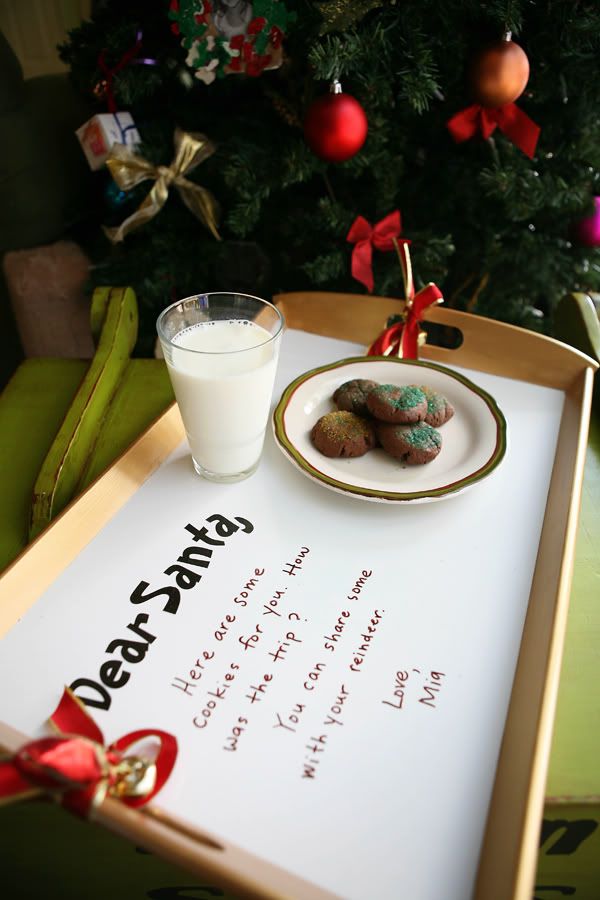 Dear Santa,
Here are some
cookies for you. How
was the trip?
You can share some
with your reindeer.
Love,
Mia